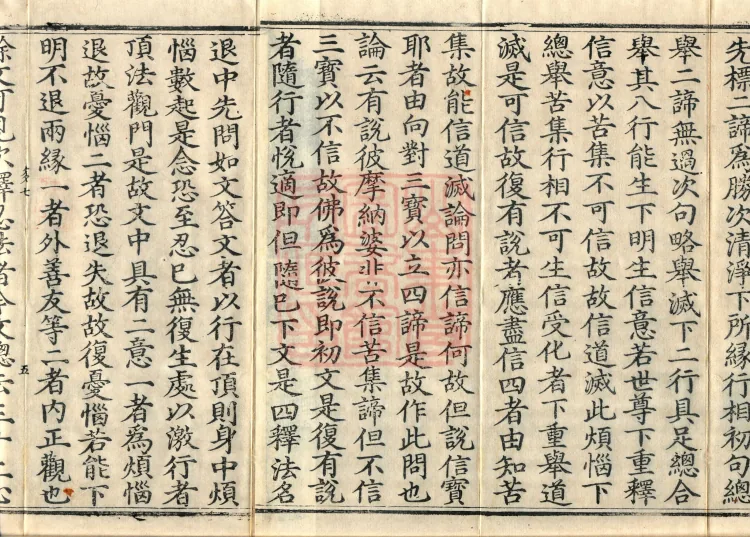 先標二諦爲勝次清淨下所縁行相初句總
舉二諦無過次句略舉滅下二行具足總合
舉其八行能生下明生信意若世尊下重釋
信意以苦集不可信故故信道滅此煩惱下
總舉苦集行相不可生信受化者下重舉道
滅是可信故復有說者應盡信四者由知苦
集故能信道滅論問亦信諦何故但說信寶
耶者由向對三寶以立四諦是故作此問也
論云有說彼摩納婆非不信苦集諦但不信
三寶以不信故佛爲彼說即初文是復有說
者隨行者悅適即但隨已下文是四釋法名
退中先問如文答文者以行在頂則身中煩
惱數起是念恐至忍已無復生處以激行者
頂法觀門是故文中具有二意一者爲煩惱
退故憂惱二者恐退失故故復憂惱若能下
明不退兩縁一者外善友等二者內正觀也
五